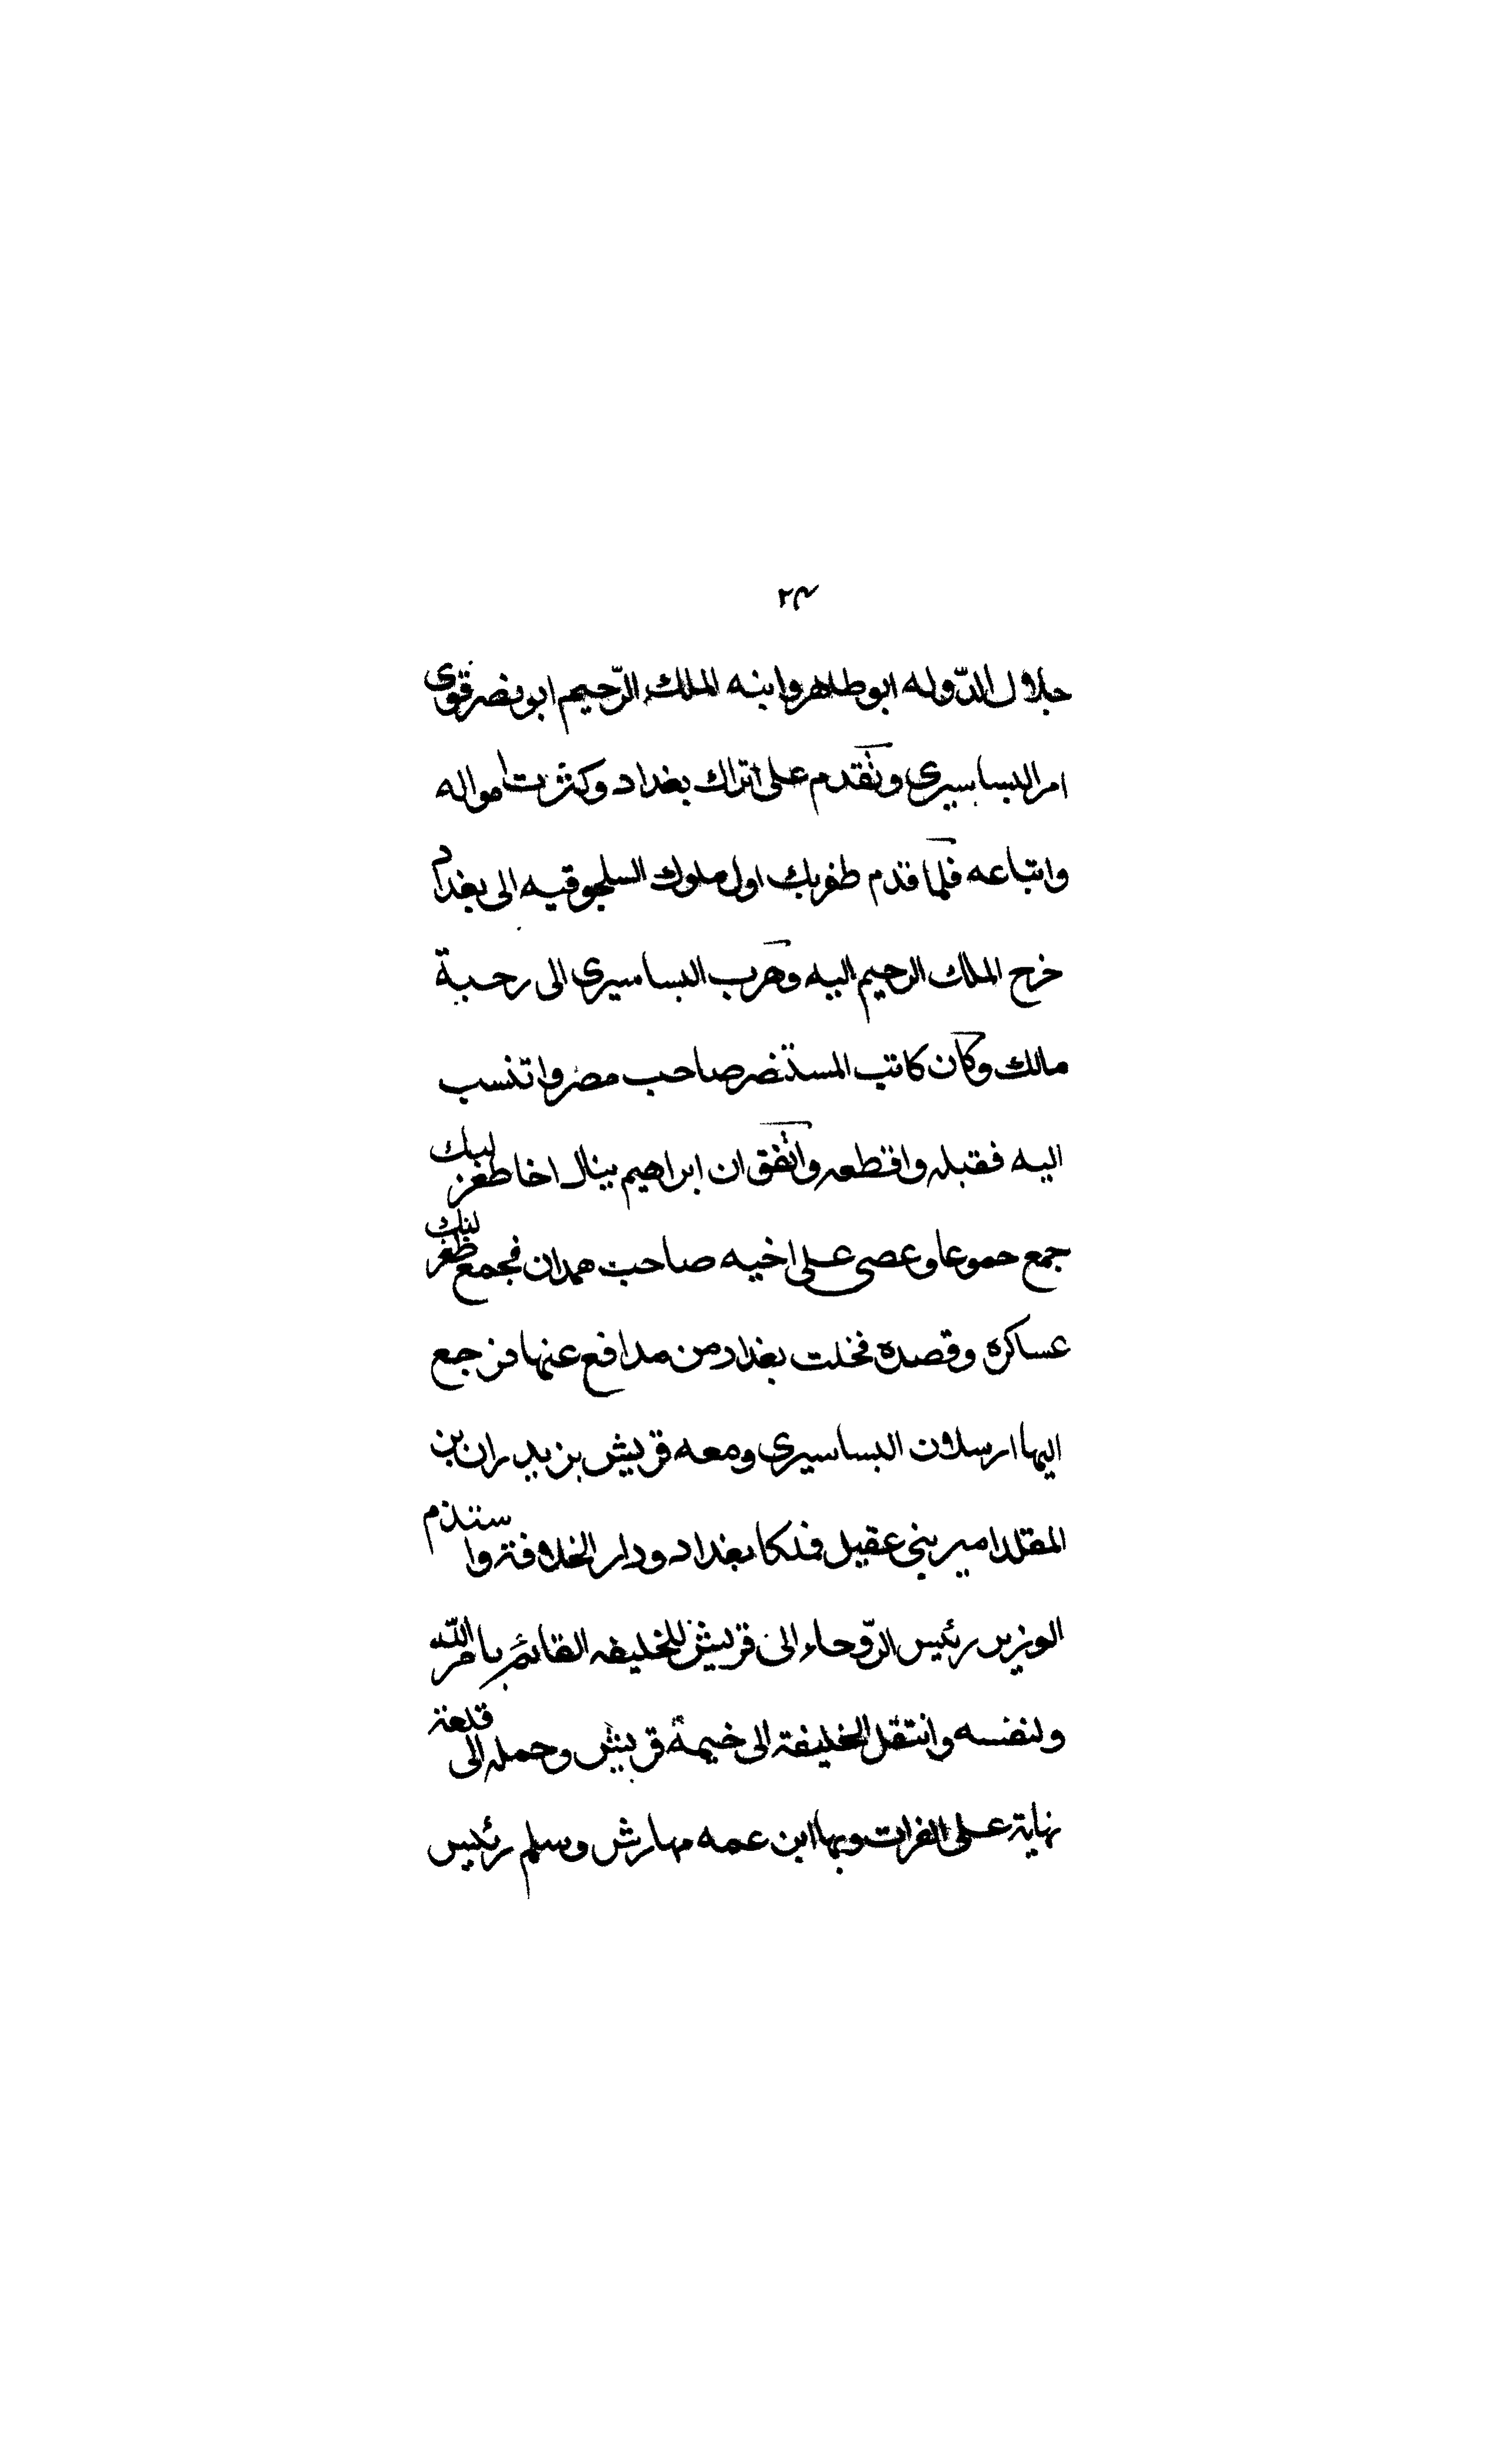 ٢٣
جلال الدّوله ابو طاهر وابنه الملك الرّحيم ابو نصر قوى
امر البساسيرى وتقدم على اتراك بغداد وكثرت امواله
واتباعه فلما قدم طغربك اول ملوك السلجوقيه الى بغداد
خرج الملك الرحيم اليه وهرب البساسيرى الى رحبة
مالك وكان كاتب المستنصر صاحب مصر وا تنسب
اليه فقبله واقطعه واتفق ان ابراهيم ينال اخا طغر لبك
جمع حموعا وعصى على اخيه صاحب همدان فجمع طغر لبك
عساكره وقصده فخلت بغداد من مدافع عنها فرجع
اليها ارسلان البساسيرى ومعه قريش بن بدران بن
المقلد امير بنى عقيل فملكا بغداد ودار الخلافة وا ستذم
الوزير رئيس الرّوحاء الى قريش للخليفه القائم بامر الله
ولنفسه وانتقل الخليفة الى خيمة قريش وحمله الى قلعة
نهاية على الفرات وبها ابن عمه مهارش وسلم رئيس